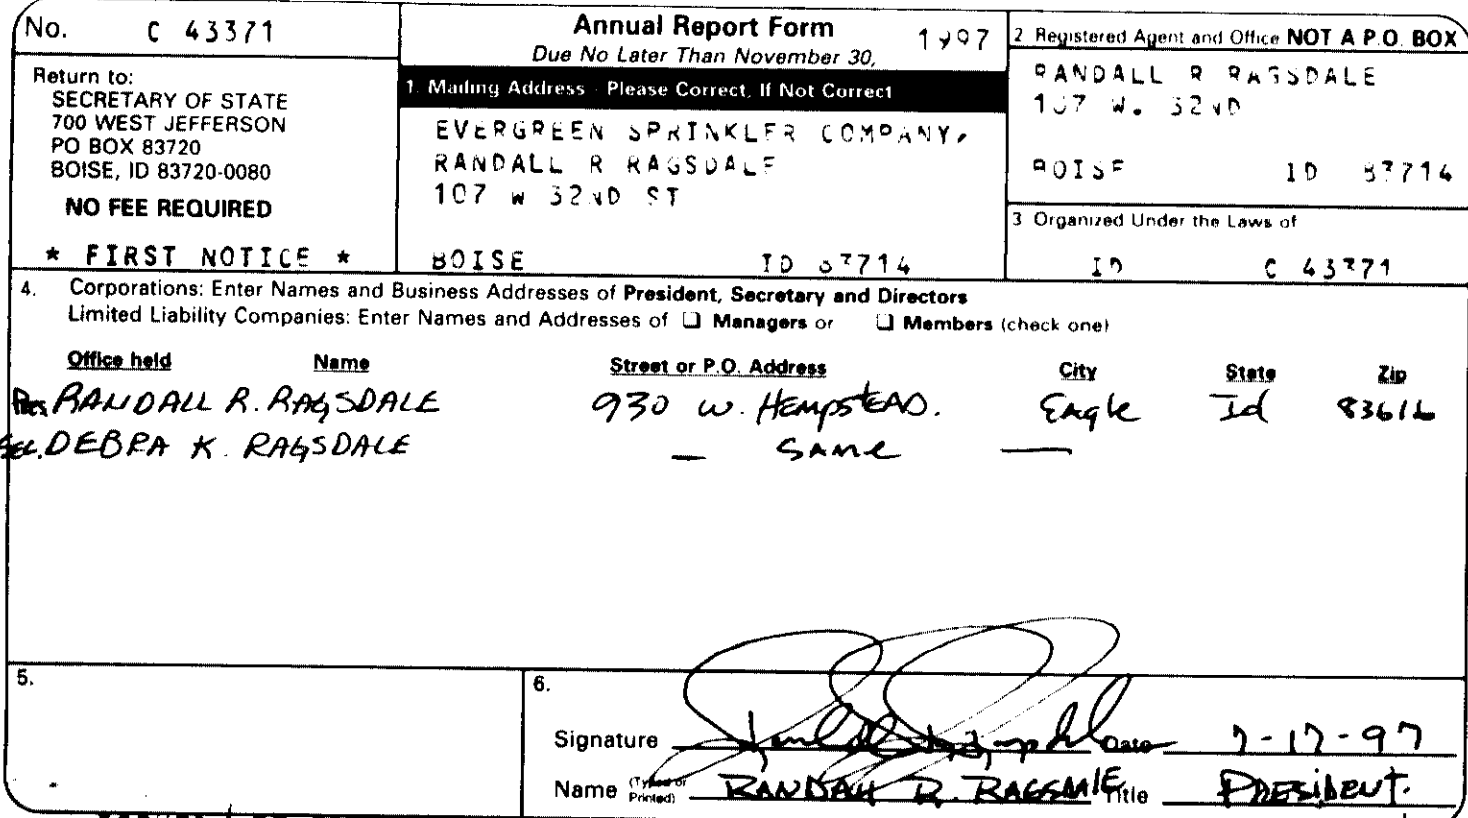 No. C 43371
Annual Report Form 1997
Due No Later Than November 30,
Return to:
SECRETARY OF STATE
700 WEST JEFFERSON
PO BOX 83720
BOISE, ID 83720-0080
NO FEE REQUIRED
* FIRST NOTICE *
1. Mailing Address - Please Correct, If Not Correct
EVERGREEN SPRINKLER COMPANY,
RANDALL R RAGSDALE
107 W 32ND ST
BOISE ID 83714
2 Registered Agent and Office NOT A P.O. BOX
RANDALL R RAGSDALE
107 W. 32ND
BOISE ID 83714
3 Organized Under the Laws of
ID C 43371
4. Corporations: Enter Names and Business Addresses of President, Secretary and Directors
Limited Liability Companies: Enter Names and Addresses of ❑ Managers or ❑ Members (check one)
Office held Name Street or P.O. Address City State Zip
Pres RANDALL R. RAGSDALE 930 W. HEMPSTEAD. Eagle Id 83616
Sec. DEBRA K. RAGSDALE — SAME —
5.
6.
Signature Date 7-17-97
Name (Typed or Printed) RANDALL R. RAGSDALE Title PRESIDENT.